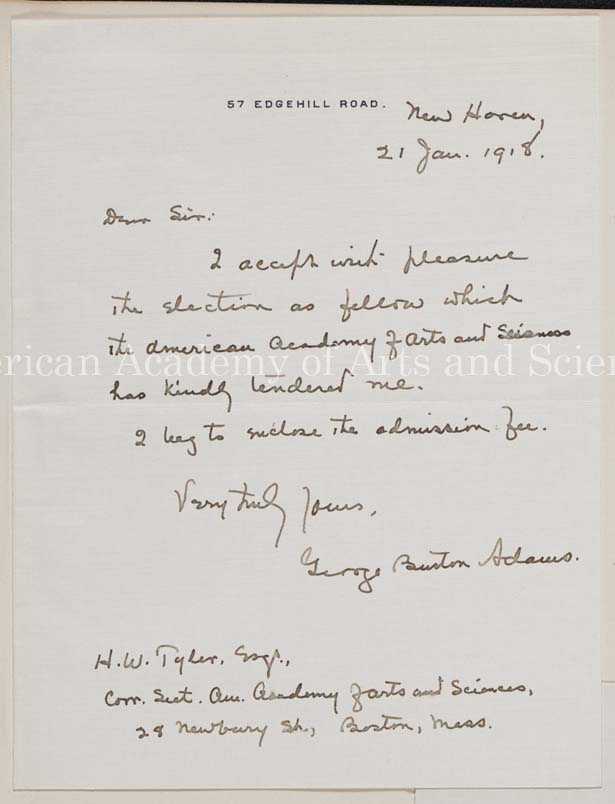 57 EDGEHILL ROAD.
New Haven,
21 Jan. 1918.
Dear Sir:
I accept with pleasure
the election as fellow which
the American Academy of Arts and Sciences
erican Academy of Arts and Scien
has kindly tendered me.
I beg to enclose the admission fee.
Very truly yours,
George Burton Adams.
H.W. Tyler, Esqr.,
Corr. Sect. Am. Academy of Arts and Sciences,
28 Newbury St., Boston, Mass.